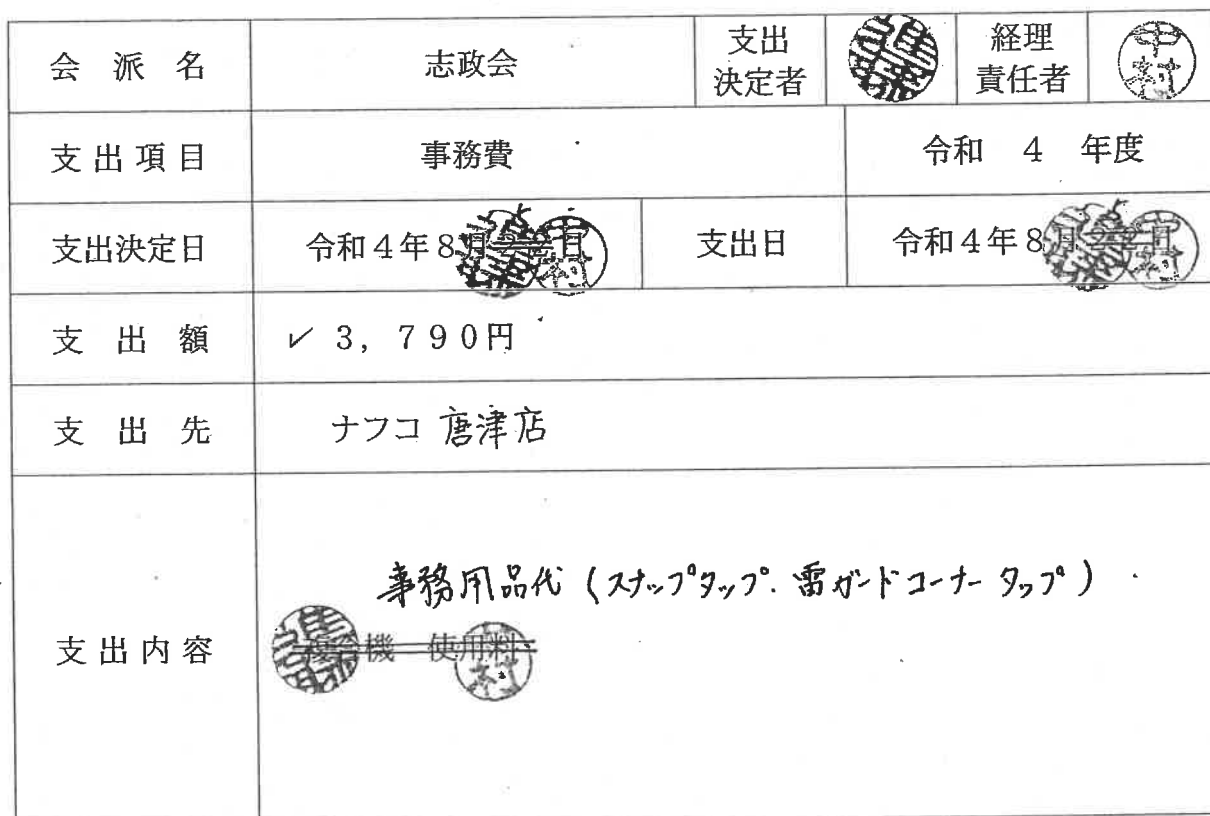 会派名 志政会 支出決定者 経理責任者 中村
支出項目 事務費 令和 4 年度
支出決定日 令和4年8月22日 中村 支出日 令和4年8月22日 中村
支出額 ✓ 3,790円
支出先 ナフコ 唐津店
事務用品代 (スナップタップ. 雷ガードコーナータップ)
支出内容 複合機 使用料 中村